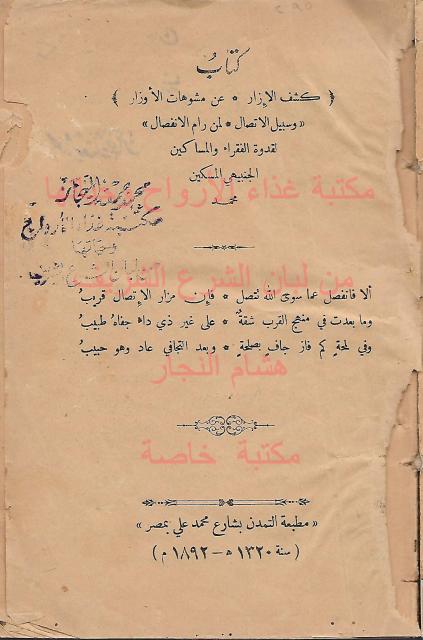 كتاب
﴿ كشف الإزار * عن مشوهات الأوزار ﴾
« وسبيل الاتصال * لمن رام الانفصال »
لقدوة الفقراء والمساكين
الجنبيهي المسكين
محمد
مكتبة غذاء الأرواح
من لبان الشرع الشريف
ألا فانفصل عما سوى الله تتصل * فإن مزار الإتصال قريبُ
وما بعدت في منهج القرب شقةٌ * على غير ذي داء جفاه طبيبُ
وفي لمحةٍ كم فاز جافٍ بصلحةٍ * وبعد التجافي عاد وهو حبيبُ
هشام النجار
مكتبة خاصة
« مطبعة التمدن بشارع محمد علي بمصر »
( سنة ١٣٢٠ ه – ١٨٩٢ م )